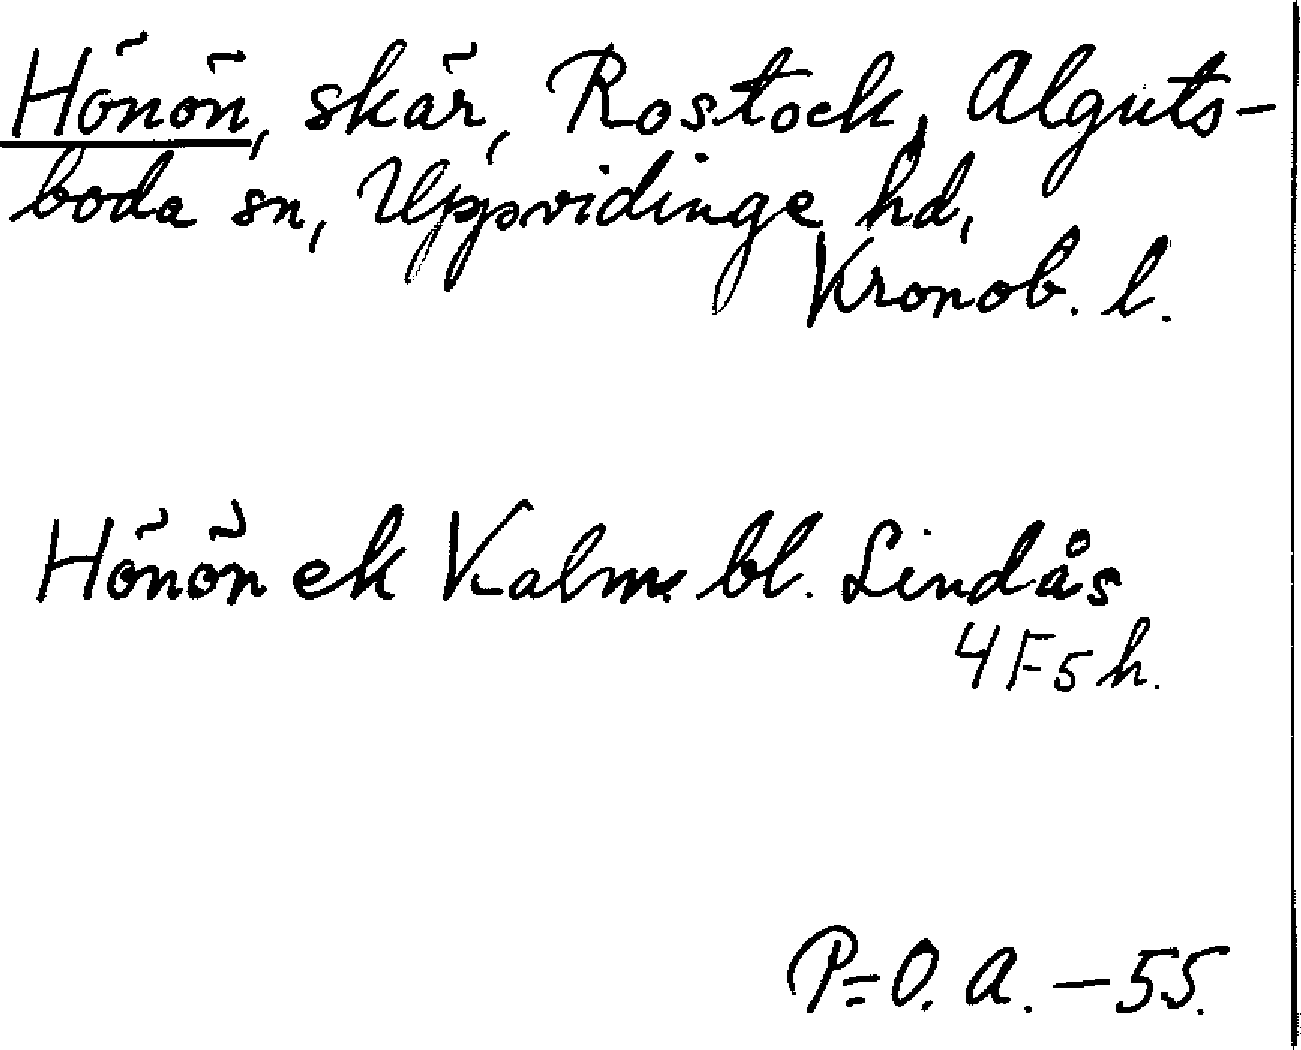 Hönön, skär, Rostock, Alguts-
boda sn, Uppvidinge hd,
Kronob. l.
Hönön ek Kalm. bl. Lindås
4F5h.
P=O. A. – 55.